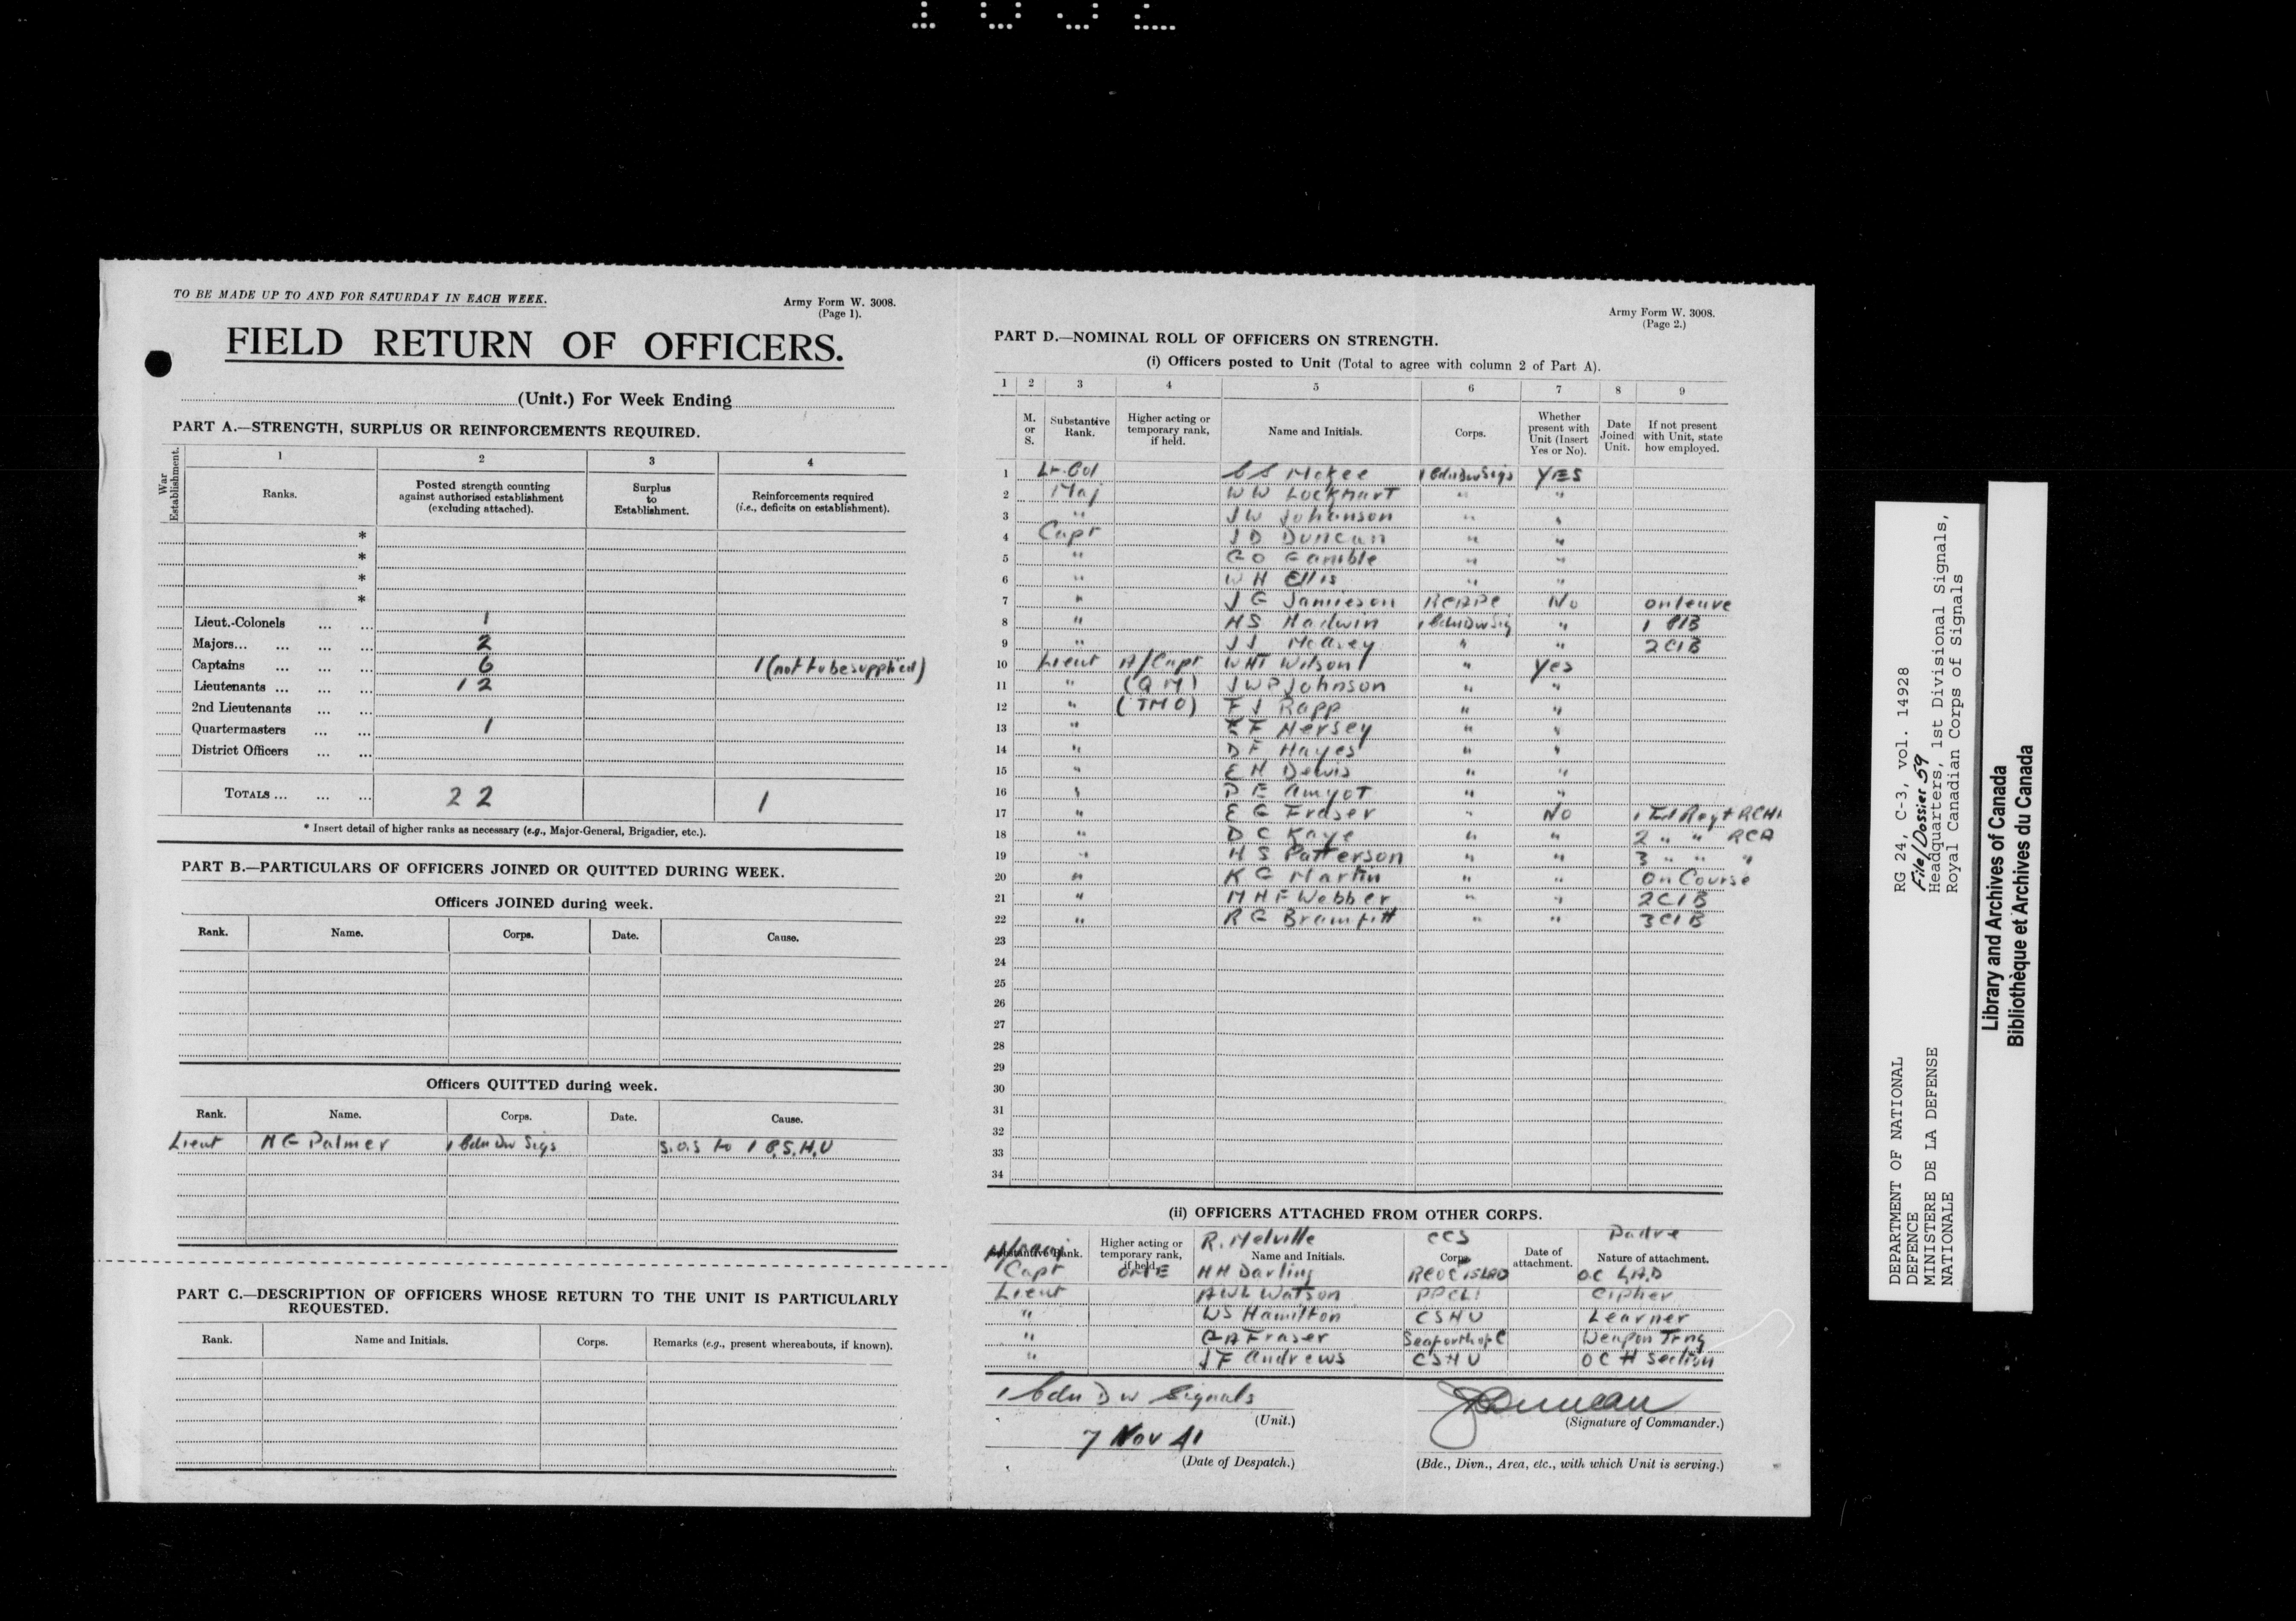 TO BE MADE UP TO AND FOR SATURDAY IN EACH WEEK.
Army Form W. 3008.
(Page 1).
FIELD RETURN OF OFFICERS.
(Unit.) For Week Ending
PART A.—STRENGTH, SURPLUS OR REINFORCEMENTS REQUIRED.
War Establishment.
1 2 3 4
Ranks. Posted strength counting against authorised establishment (excluding attached). Surplus to Establishment. Reinforcements required (i.e., deficits on establishment).
*
*
*
*
Lieut.-Colonels ... ... 1
Majors... ... ... ... 2
Captains ... ... ... 6 1 (not to be supplied)
Lieutenants ... ... ... 12
2nd Lieutenants ... ...
Quartermasters ... ... 1
District Officers ... ...
TOTALS ... ... ... 22 1
* Insert detail of higher ranks as necessary (e.g., Major-General, Brigadier, etc.).
PART B.—PARTICULARS OF OFFICERS JOINED OR QUITTED DURING WEEK.
Officers JOINED during week.
Rank. Name. Corps. Date. Cause.
Officers QUITTED during week.
Rank. Name. Corps. Date. Cause.
Lieut H G Palmer 1 Cdn Div Sigs S.O.S to 1 C.S.H.U
PART C.—DESCRIPTION OF OFFICERS WHOSE RETURN TO THE UNIT IS PARTICULARLY
REQUESTED.
Rank. Name and Initials. Corps. Remarks (e.g., present whereabouts, if known).
Army Form W. 3008.
(Page 2.)
PART D.—NOMINAL ROLL OF OFFICERS ON STRENGTH.
(i) Officers posted to Unit (Total to agree with column 2 of Part A).
1 2 3 4 5 6 7 8 9
M. or S. Substantive Rank. Higher acting or temporary rank, if held. Name and Initials. Corps. Whether present with Unit (Insert Yes or No). Date Joined Unit. If not present with Unit, state how employed.
1 Lt-Col McKee 1 Cdn Div Sigs YES
2 Maj W W Lockhart " "
3 " J W Johanson " "
4 Capt J D Duncan " "
5 " G O Gamble " "
6 " W H Ellis " "
7 " J G Jamieson No on leave
8 " H S Hadwin 1 Cdn Div Sig " 1 CIB
9 " J J McAvey " " 2 CIB
10 Lieut A/Capt W H T Wilson " Yes
11 " (QM) J W P Johnson " "
12 " (TMO) F J Rapp " "
13 " F Hersey " "
14 " D F Hayes " "
15 " E H " "
16 " P E Amyot " "
17 " E G Fraser " No 1 Fd Regt RCHA
18 " D C Kaye " " 2 " " RCA
19 " H S Patterson " " 3 " " "
20 " K G Martin " " On Course
21 " M H F Webber " " 2 CIB
22 " R G Bramfitt " " 3 CIB
23
24
25
26
27
28
29
30
31
32
33
34
(ii) OFFICERS ATTACHED FROM OTHER CORPS.
R. Melville CCS Padre
Substantive Rank. Higher acting or temporary rank, if held. Name and Initials. Corps. Date of attachment. Nature of attachment.
Capt OME H H Darling RCOC O C LAD
Lieut A W L Watson PPCLI Cipher
" W S Hamilton CSHU Learner
" G A Fraser Seaforth of C Weapon Trng
" J F Andrews CSHU O C H Section
1 Cdn Div Signals
(Unit.)
JDDuncan
(Signature of Commander.)
7 Nov 41
(Date of Despatch.)
(Bde., Divn., Area, etc., with which Unit is serving.)
DEPARTMENT OF NATIONAL
DEFENCE
MINISTERE DE LA DEFENSE
NATIONALE
RG 24, C-3, vol. 14928
File/Dossier 59
Headquarters, 1st Divisional Signals,
Royal Canadian Corps of Signals
Library and Archives of Canada
Bibliothèque et Archives du Canada